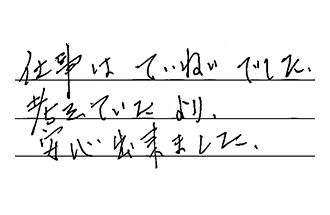 仕事は ていねい でした.
考えていた より,
安心出来ました.